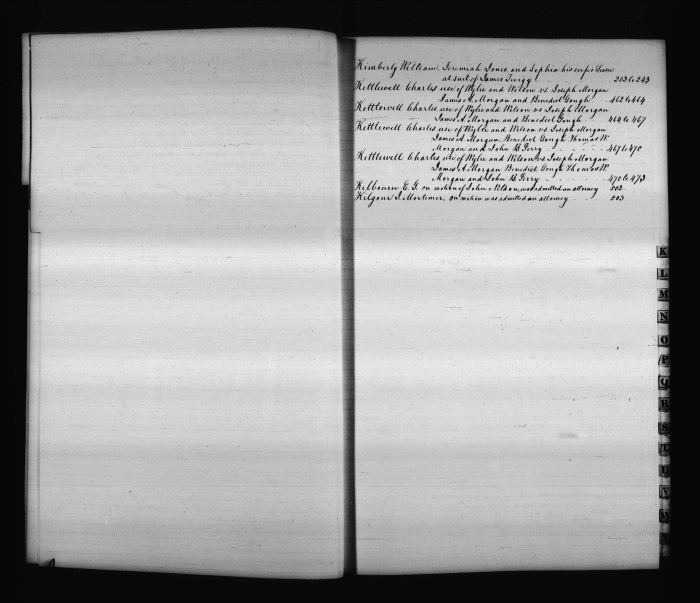 Kimberly William, Jeremiah Jones, and Sophia his wife
at suit of James Twigg 203 to 243
Kettlewell Charles use of Wylie and Wilson vs. Joseph Morgan
James A. Morgan and Benedict Gough 462 to 464
Kettlewell Charles use of Wylie and Wilson vs Joseph Morgan
James A. Morgan and Benedict Gough 464 to 467
Kettlewell Charles use of Wylie and Wilson vs Joseph Morgan
James A. Morgan, Benedict Gough Thomas W.
Morgan and John B. Perry 467 to 470
Kettlewell Charles use of Wylie and Wilson vs Joseph Morgan
James A. Morgan Benedict Gough Thomas W.
Morgan and John B. Perry 470 to 473
Kilbourn E. G. on motion of John Nelson, was admitted an attorney 502
Kilgour J. Mortimer, on motion was admitted an attorney 503
K
L
M
N
O
P
Q
R
S
T
V
W